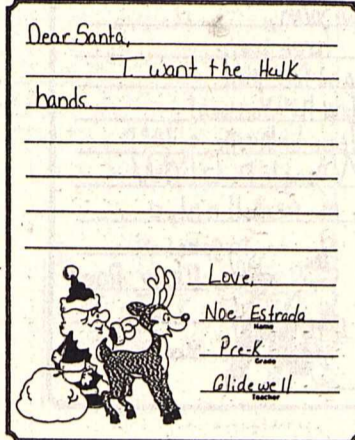 Dear Santa,
I want the Hulk
hands.
Love,
Noe Estrada
Name
Pre-K
Grade
Glidewell
Teacher